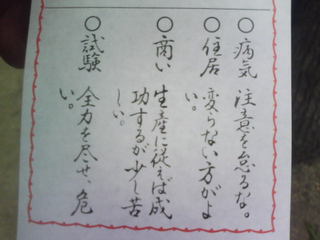 ○病気 注意を怠るな。
○住居 変らない方がよ
い。
○商い 生産に従えば成
功するが少し苦
しい。
○試験 全力を尽せ、危
い。